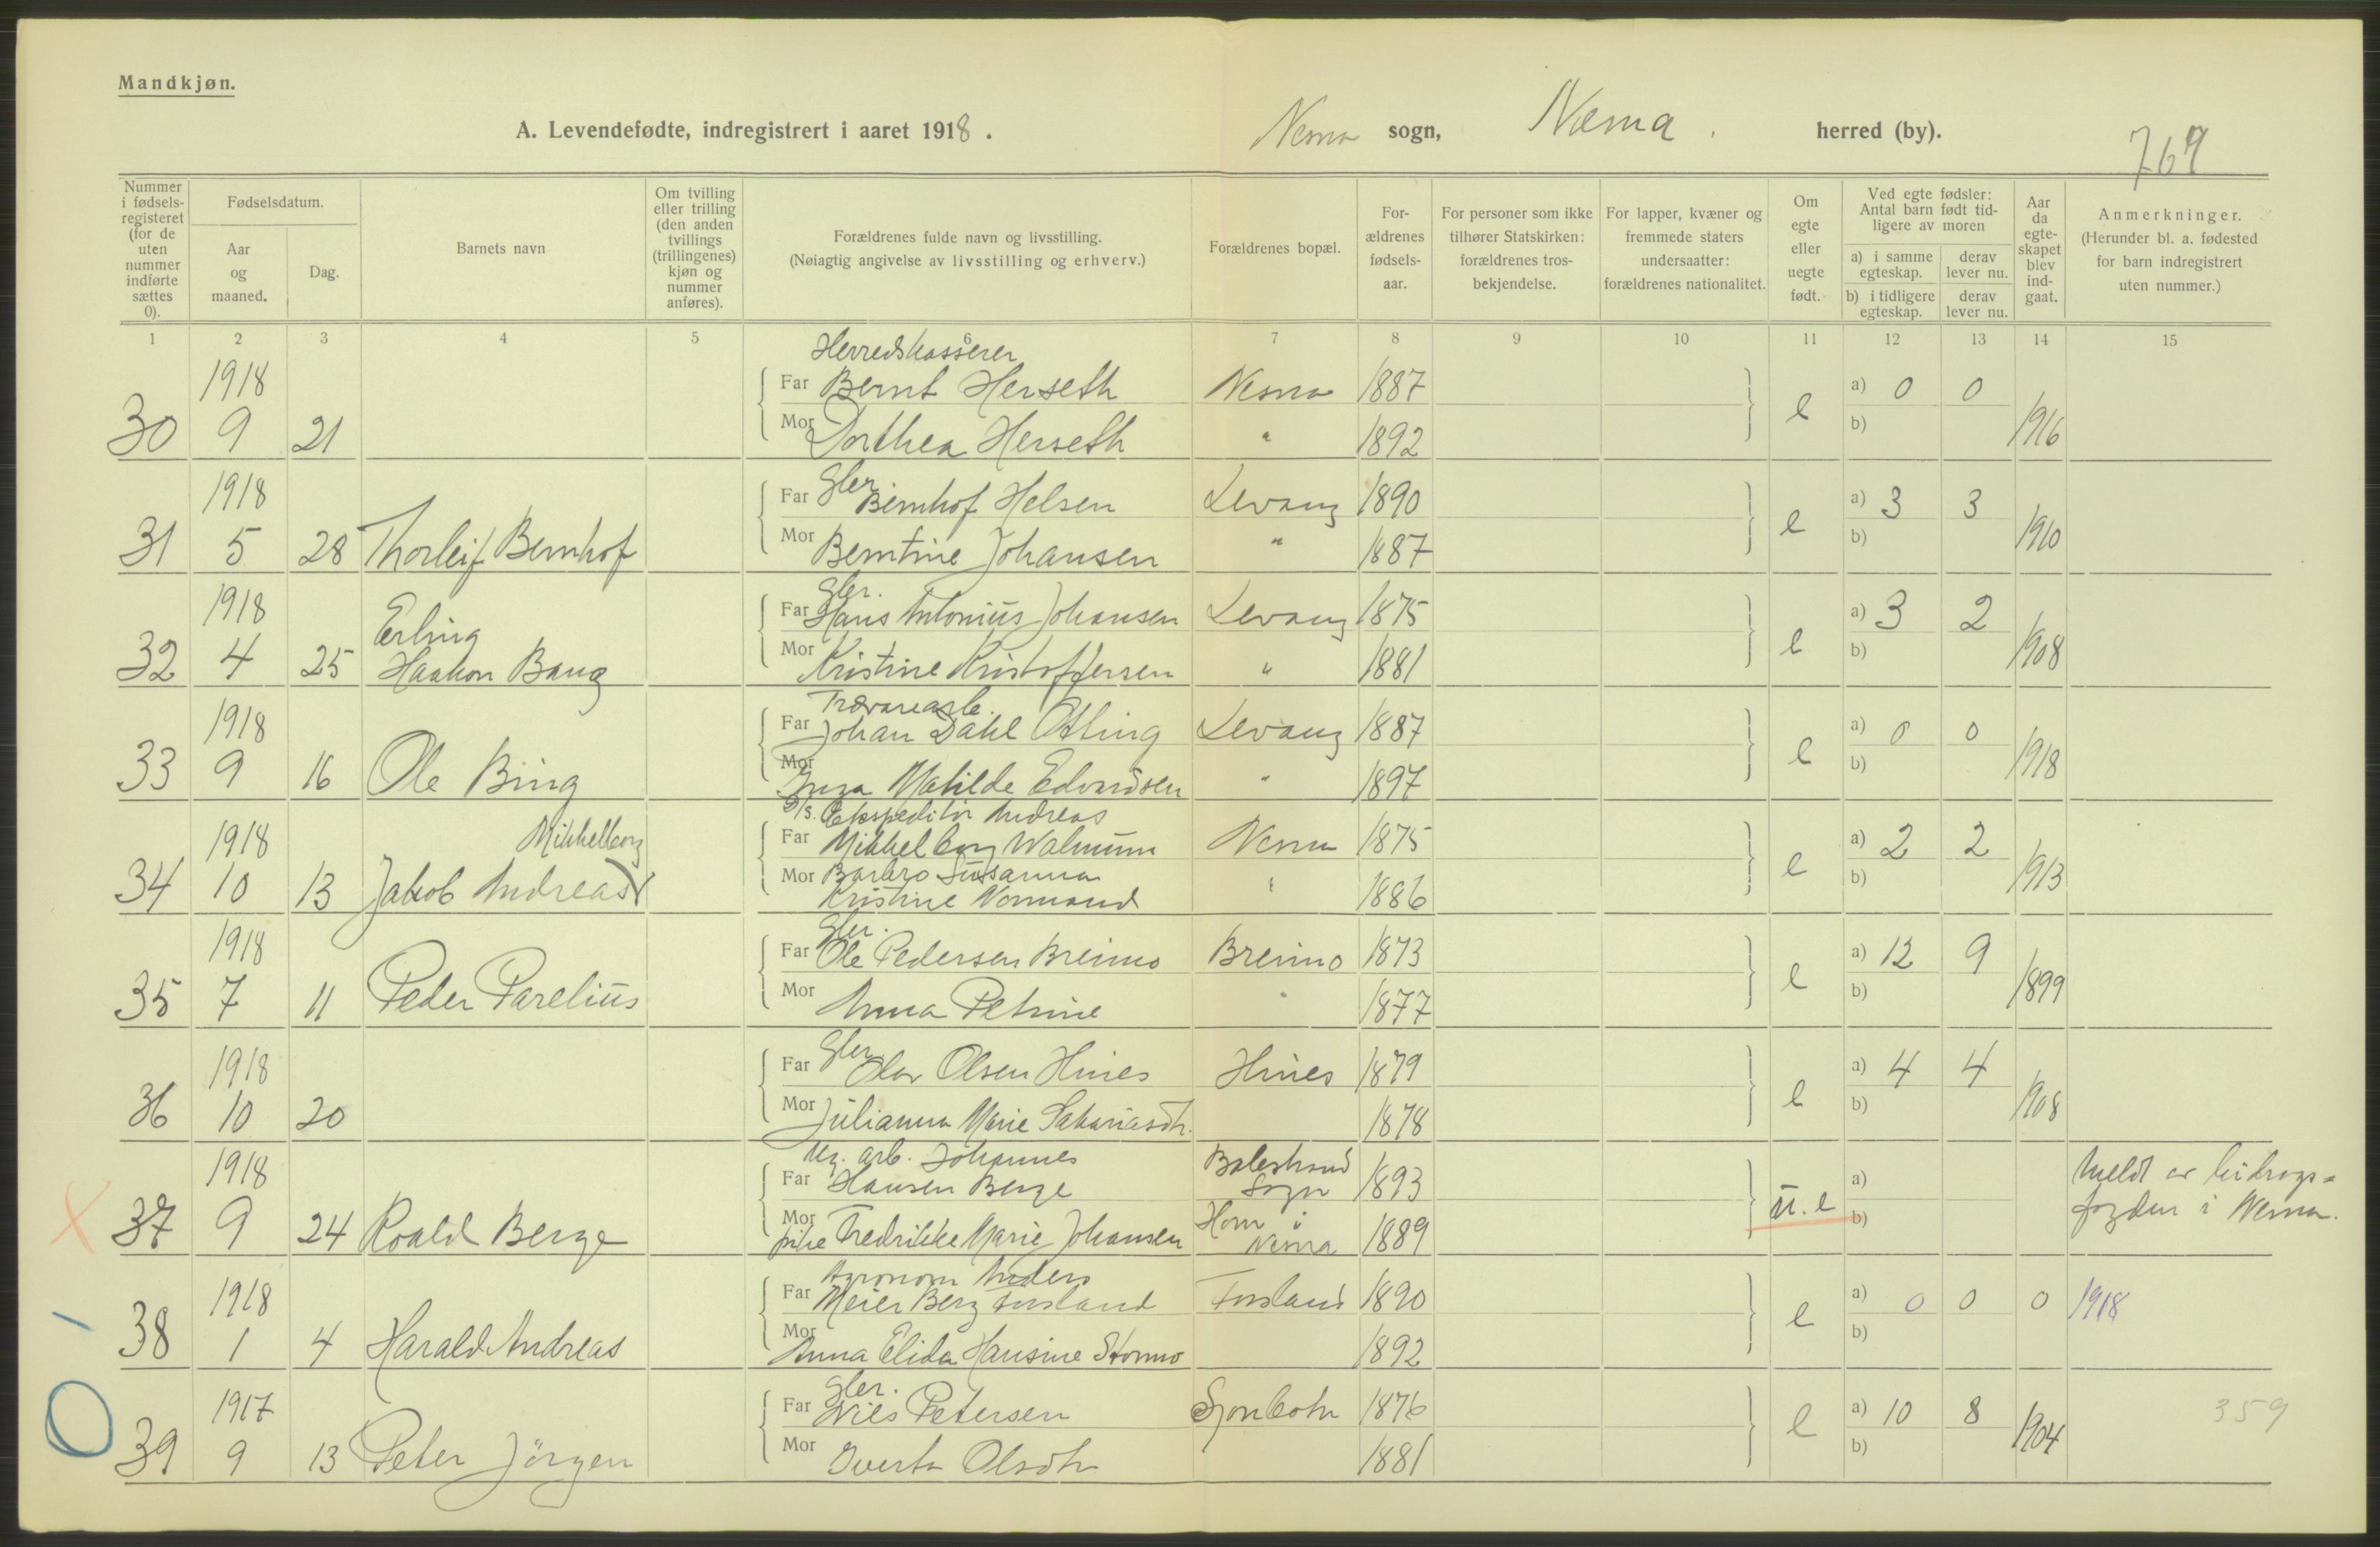 Mandkjøn.
A. Levendefødte, indregistrert i aaret 1918. Nesna sogn, Nesna. herred (by).
769
Nummer i fødsels-registeret (for de uten nummer indførte sættes 0).
Fødselsdatum.
Aar og maaned.
Dag.
Barnets navn
Om tvilling eller trilling (den anden tvillings (trillingenes) kjøn og nummer anføres).
Forældrenes fulde navn og livsstilling.
(Nøiagtig angivelse av livsstilling og erhverv.)
Forældrenes bopæl.
For-ældrenes fødsels-aar.
For personer som ikke tilhører Statskirken: forældrenes tros-bekjendelse.
For lapper, kvæner og fremmede staters undersaatter: forældrenes nationalitet.
Om egte eller uegte født.
Ved egte fødsler: Antal barn født tid-ligere av moren
a) i samme egteskap. derav lever nu.
b) i tidligere egteskap. derav lever nu.
Aar da egte-skapet blev ind-gaat.
Anmerkninger.
(Herunder bl. a. fødested for barn indregistrert uten nummer.)
1 2 3 4 5 6 7 8 9 10 11 12 13 14 15
Herredskasserer
1918 Far Bernt Herseth Nesna 1887 a) 0 0
30 9 21 Mor Dorthea Herseth " 1892 e b) 1916
1918 Far Gbr. Bernhof Helsen Levang 1890 a) 3 3
31 5 28 Thorleif Bernhof Mor Berntine Johansen " 1887 e b) 1910
Gbr.
1918 Erling Far Hans Antonius Johansen Levang 1875 a) 3 2
32 4 25 Haakon Baug Mor Kristine Kristoffersen " 1881 e b) 1908
Trævarearb.
1918 Far Johan Dahl Otting Levang 1887 a) 0 0
33 9 16 Ole Bing Mor Inga Mathilde Edvardsen " 1897 e b) 1918
D/S. Ekspeditør Andreas
1918 Mikkelborg Far Mikkelborg Walnum Nesna 1875 a) 2 2
34 10 13 Jakob Andreas Mor Barbro Susanna Kristine Normand " 1886 e b) 1913
Gbr.
1918 Far Ole Pedersen Breimo Breimo 1873 a) 12 9
35 7 11 Peder Parelius Mor Anna Petrine " 1877 e b) 1899
1918 Far Gbr. Olav Olsen Hines Hines 1879 a) 4 4
36 10 20 Mor Julianna Marie Sakariasdtr. 1878 e b) 1908
Ug. arb. Johannes
1918 Far Hansen Berge Balestrand Sogn 1893 a) Meldt av bidrags-
37 9 24 Roald Berge Mor pike Fredrikke Marie Johansen Horn i Nesna 1889 u.e b) fogden i Nesna.
Agronom Anders
1918 Far Meier Berg Forsland Forsland 1890 a) 0 0 0 1918
38 1 4 Harald Andreas Mor Anna Elida Hansine Stormo 1892 e b)
Gbr.
1917 Far Nils Petersen Sjonbotn 1876 a) 10 8 359
39 9 13 Peter Jörgen Mor Iverta Olsdtr 1881 e b) 1904